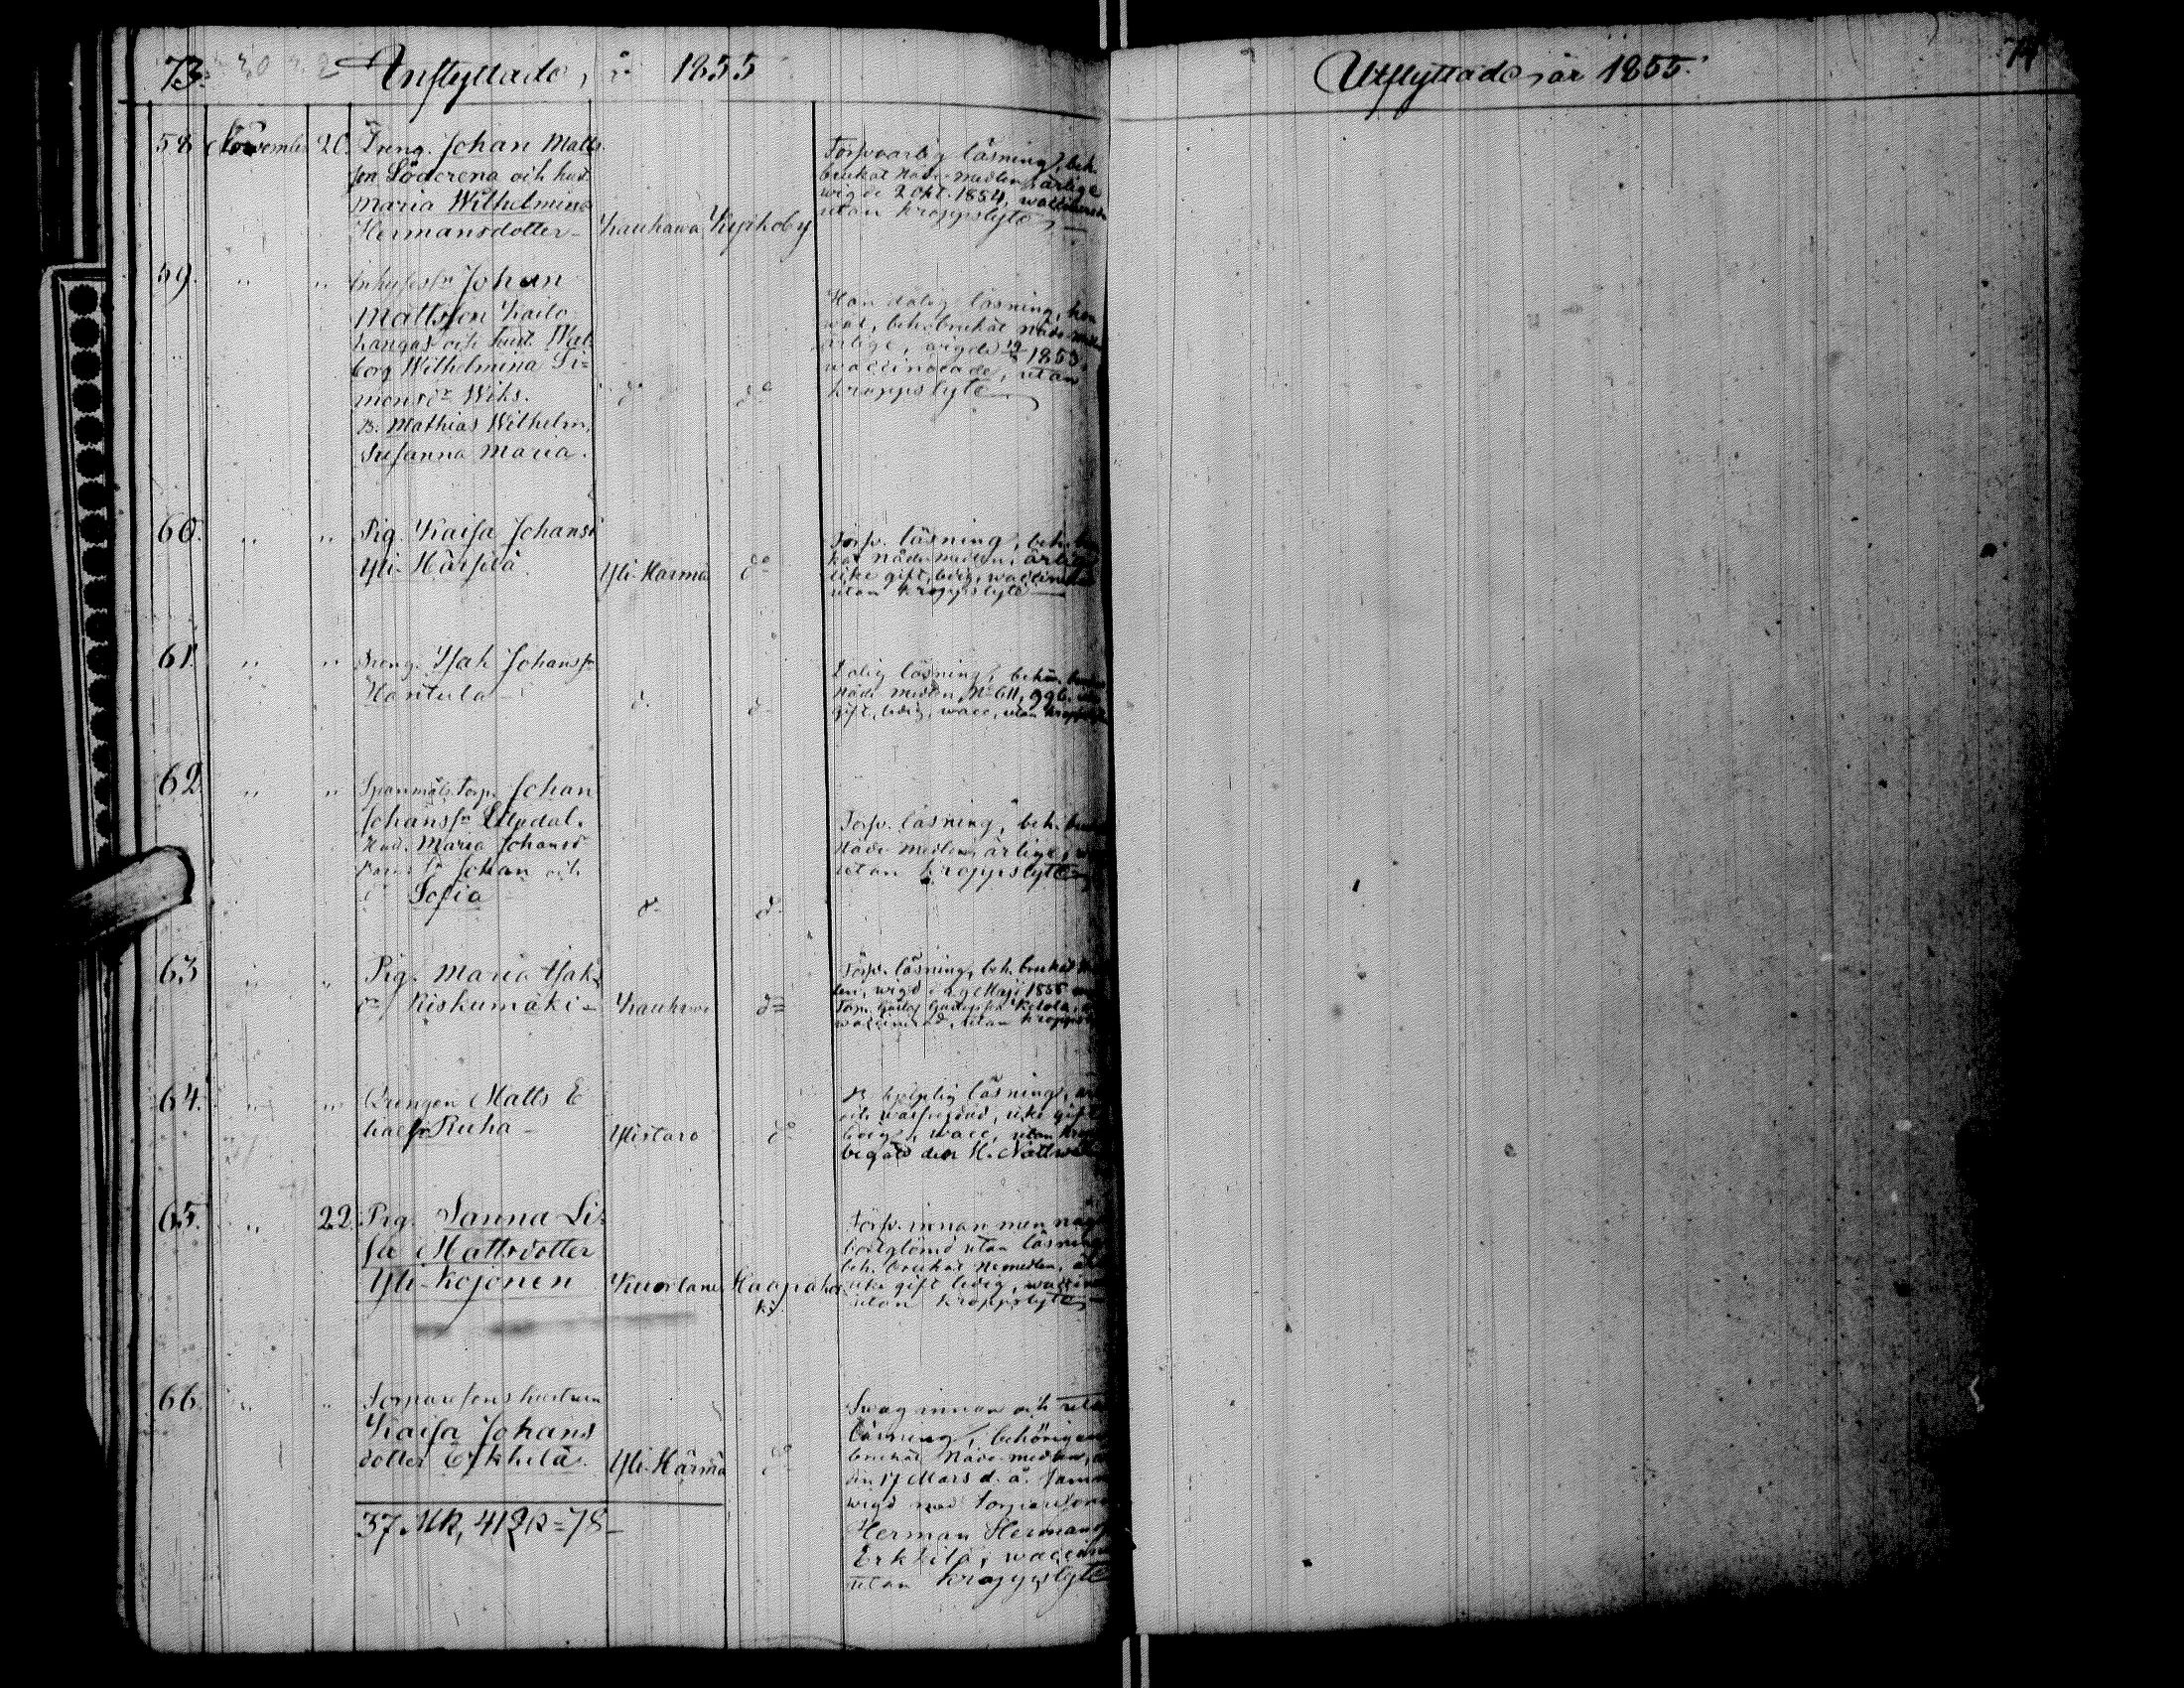 73. Inflyttade, år 1855
58 November 20. Dreng. Johan Matts
son Söderena och hust.
Maria Wilhelmina
Hermansdotter - Kauhawa Kyrkoby
Försvarlig läsning, beh.
brukat Nåde-medlen, ärlige
wigde 2 Okt. 1854, waccinerade
utan kroppslyte
59. " " Inhysesn Johan
Mattsson
hangas och hust. Wal
borg Wilhelmina Si=
monsdr Wiks. do do
B. Mathias Wilhelm,
Susanna Maria.
Han dålig läsning, hon
wäl, beh. brukat nåde-
ärlige, wigde 19/ 1853,
waccinerade, utan
kroppslyte
60. " " Pig. Kaisa Johansd
Yli-Härsilä Yli-Härmä do
Försv. läsning, beh. bru
kat nådemedlen, ärlig
icke gift, ledig, waccinerad
utan kroppslyte
61. " " Dreng. Isak Johanssn
Hantula d. d.
Dålig läsning, behör.
Nåde medlen,
gift, ledig, wacc, utan kroppslyte
62. " " Spanmåls torp. Johan
Johanssn Liljedal.
Hust. Maria Johansd
Johan och
dr Sofia d. d.
Försv. läsning, beh.
Nåde-medlen, ärlige,
utan kroppslyte
63 " " Pig. Maria Isaks
dr Kiskumäki - Kauhawa do
Försv. läsning, beh. brukat
len, wigd d 29 Maji 1855
Torp. Gustaf Gustafsson Ketola,
waccinerad, utan kropps
64. " " Drengen Matts E
liaesn Ruha - Ylistaro do
hjelplig läsning,
och icke gift
ledig, wacc, utan krop
begått den H. Nattward
65. " 22. Pig. Sanna Li=
sa Mattsdotter
Yli-Kojonen Kuortane Haapakos
ki
Försv. innan men någ
bortglömd utan läsning
beh. brukat Nmedlen,
icke gift ledig, waccine
utan kroppslyte
66. " " Torparesons hustrun
Kaisa Johans
dotter Erkkilä. Yli-Härmä do
Swag innan och utan
läsning, behörigen
brukat Nåde-medlen,
den 17 Mars d. å.
wigd med Torpareson
Herman Hermans
Erkkilä, waccine
utan kroppslyte
37 Mk, 41 Qk = 78
Utflyttade, år 1855. 74